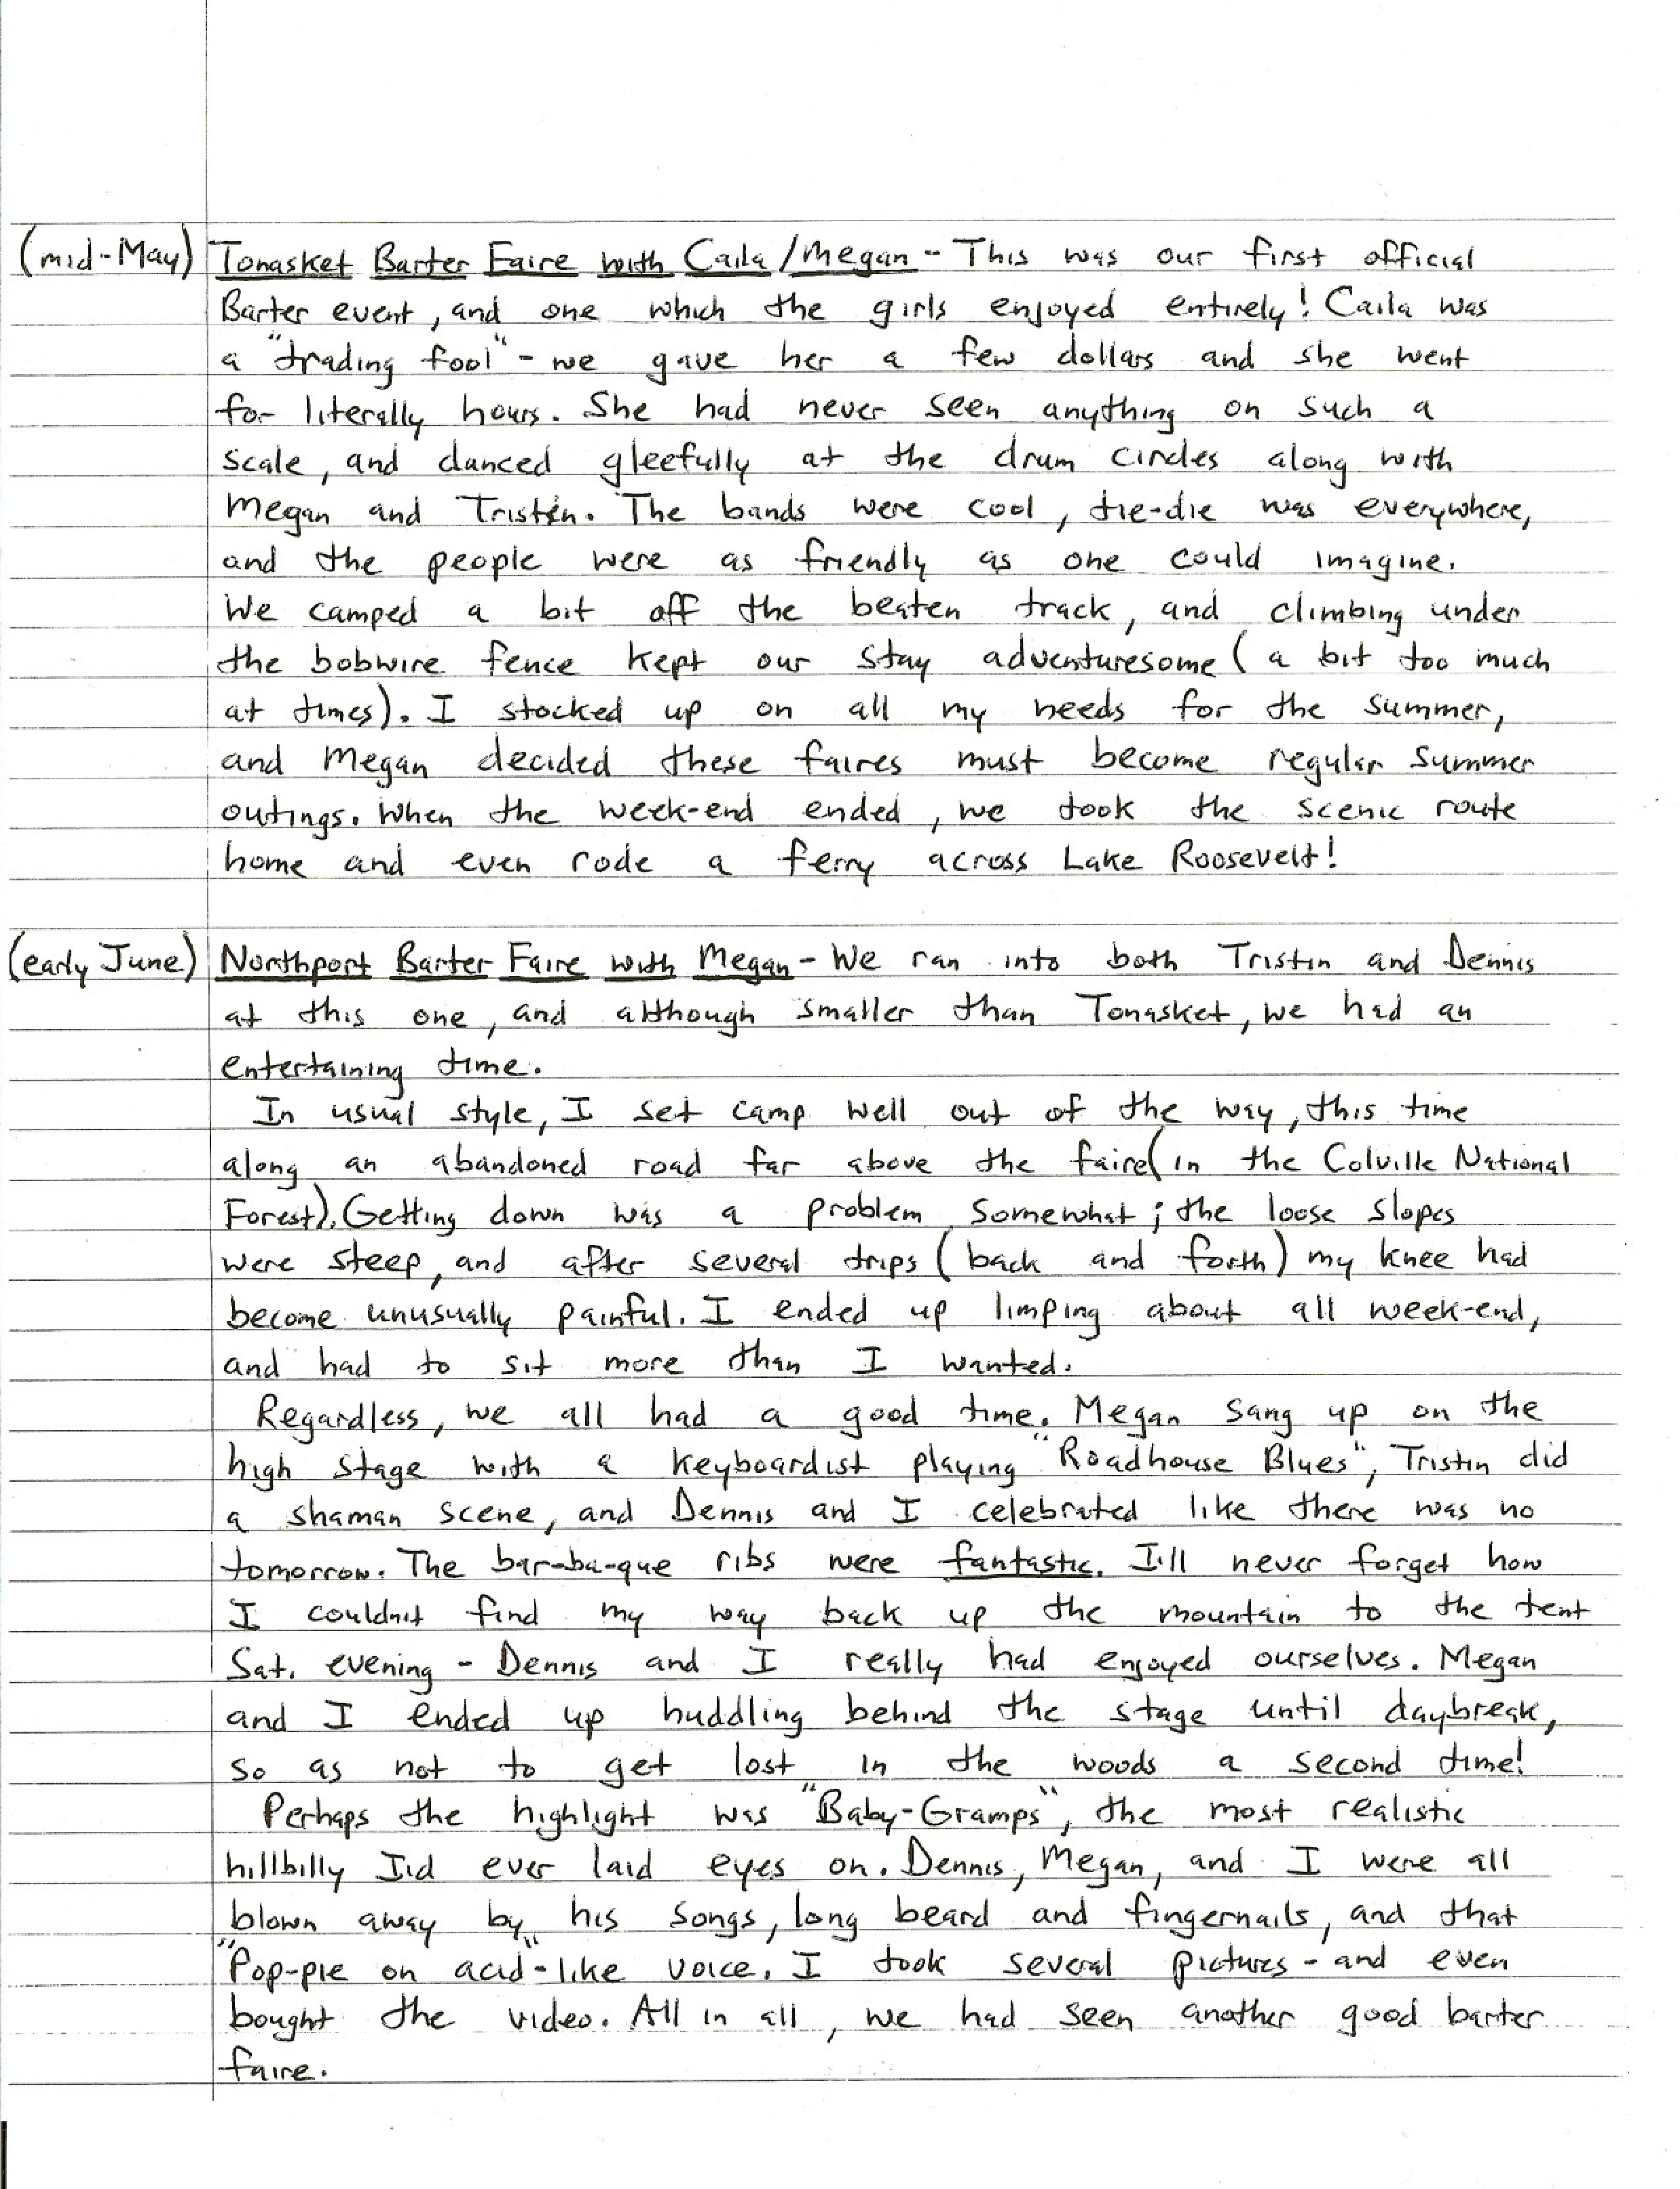 (mid-May) Tonasket Barter Faire with Caila/Megan - This was our first official
Barter event, and one which the girls enjoyed entirely! Caila was
a "trading fool" - we gave her a few dollars and she went
for literally hours. She had never seen anything on such a
scale, and danced gleefully at the drum circles along with
Megan and Tristin. The bands were cool, tie-die was everywhere,
and the people were as friendly as one could imagine.
We camped a bit off the beaten track, and climbing under
the bobwire fence kept our stay adventuresome (a bit too much
at times). I stocked up on all my needs for the summer,
and Megan decided these faires must become regular summer
outings. When the week-end ended, we took the scenic route
home and even rode a ferry across Lake Roosevelt!
(early June) Northport Barter Faire with Megan - We ran into both Tristin and Dennis
at this one, and although smaller than Tonasket, we had an
entertaining time.
In usual style, I set camp well out of the way, this time
along an abandoned road far above the faire (in the Colville National
Forest). Getting down was a problem somewhat; the loose slopes
were steep, and after several trips (back and forth) my knee had
become unusually painful. I ended up limping about all week-end,
and had to sit more than I wanted.
Regardless, we all had a good time. Megan sang up on the
high stage with a keyboardist playing "Roadhouse Blues", Tristin did
a shaman scene, and Dennis and I celebrated like there was no
tomorrow. The bar-ba-que ribs were fantastic. I'll never forget how
I couldn't find my way back up the mountain to the tent
Sat. evening - Dennis and I really had enjoyed ourselves. Megan
and I ended up huddling behind the stage until daybreak,
so as not to get lost in the woods a second time!
Perhaps the highlight was "Baby-Gramps", the most realistic
hillbilly I'd ever laid eyes on. Dennis, Megan, and I were all
blown away by his songs, long beard and fingernails, and that
"Pop-pie on acid"-like voice. I took several pictures - and even
bought the video. All in all, we had seen another good barter
faire.